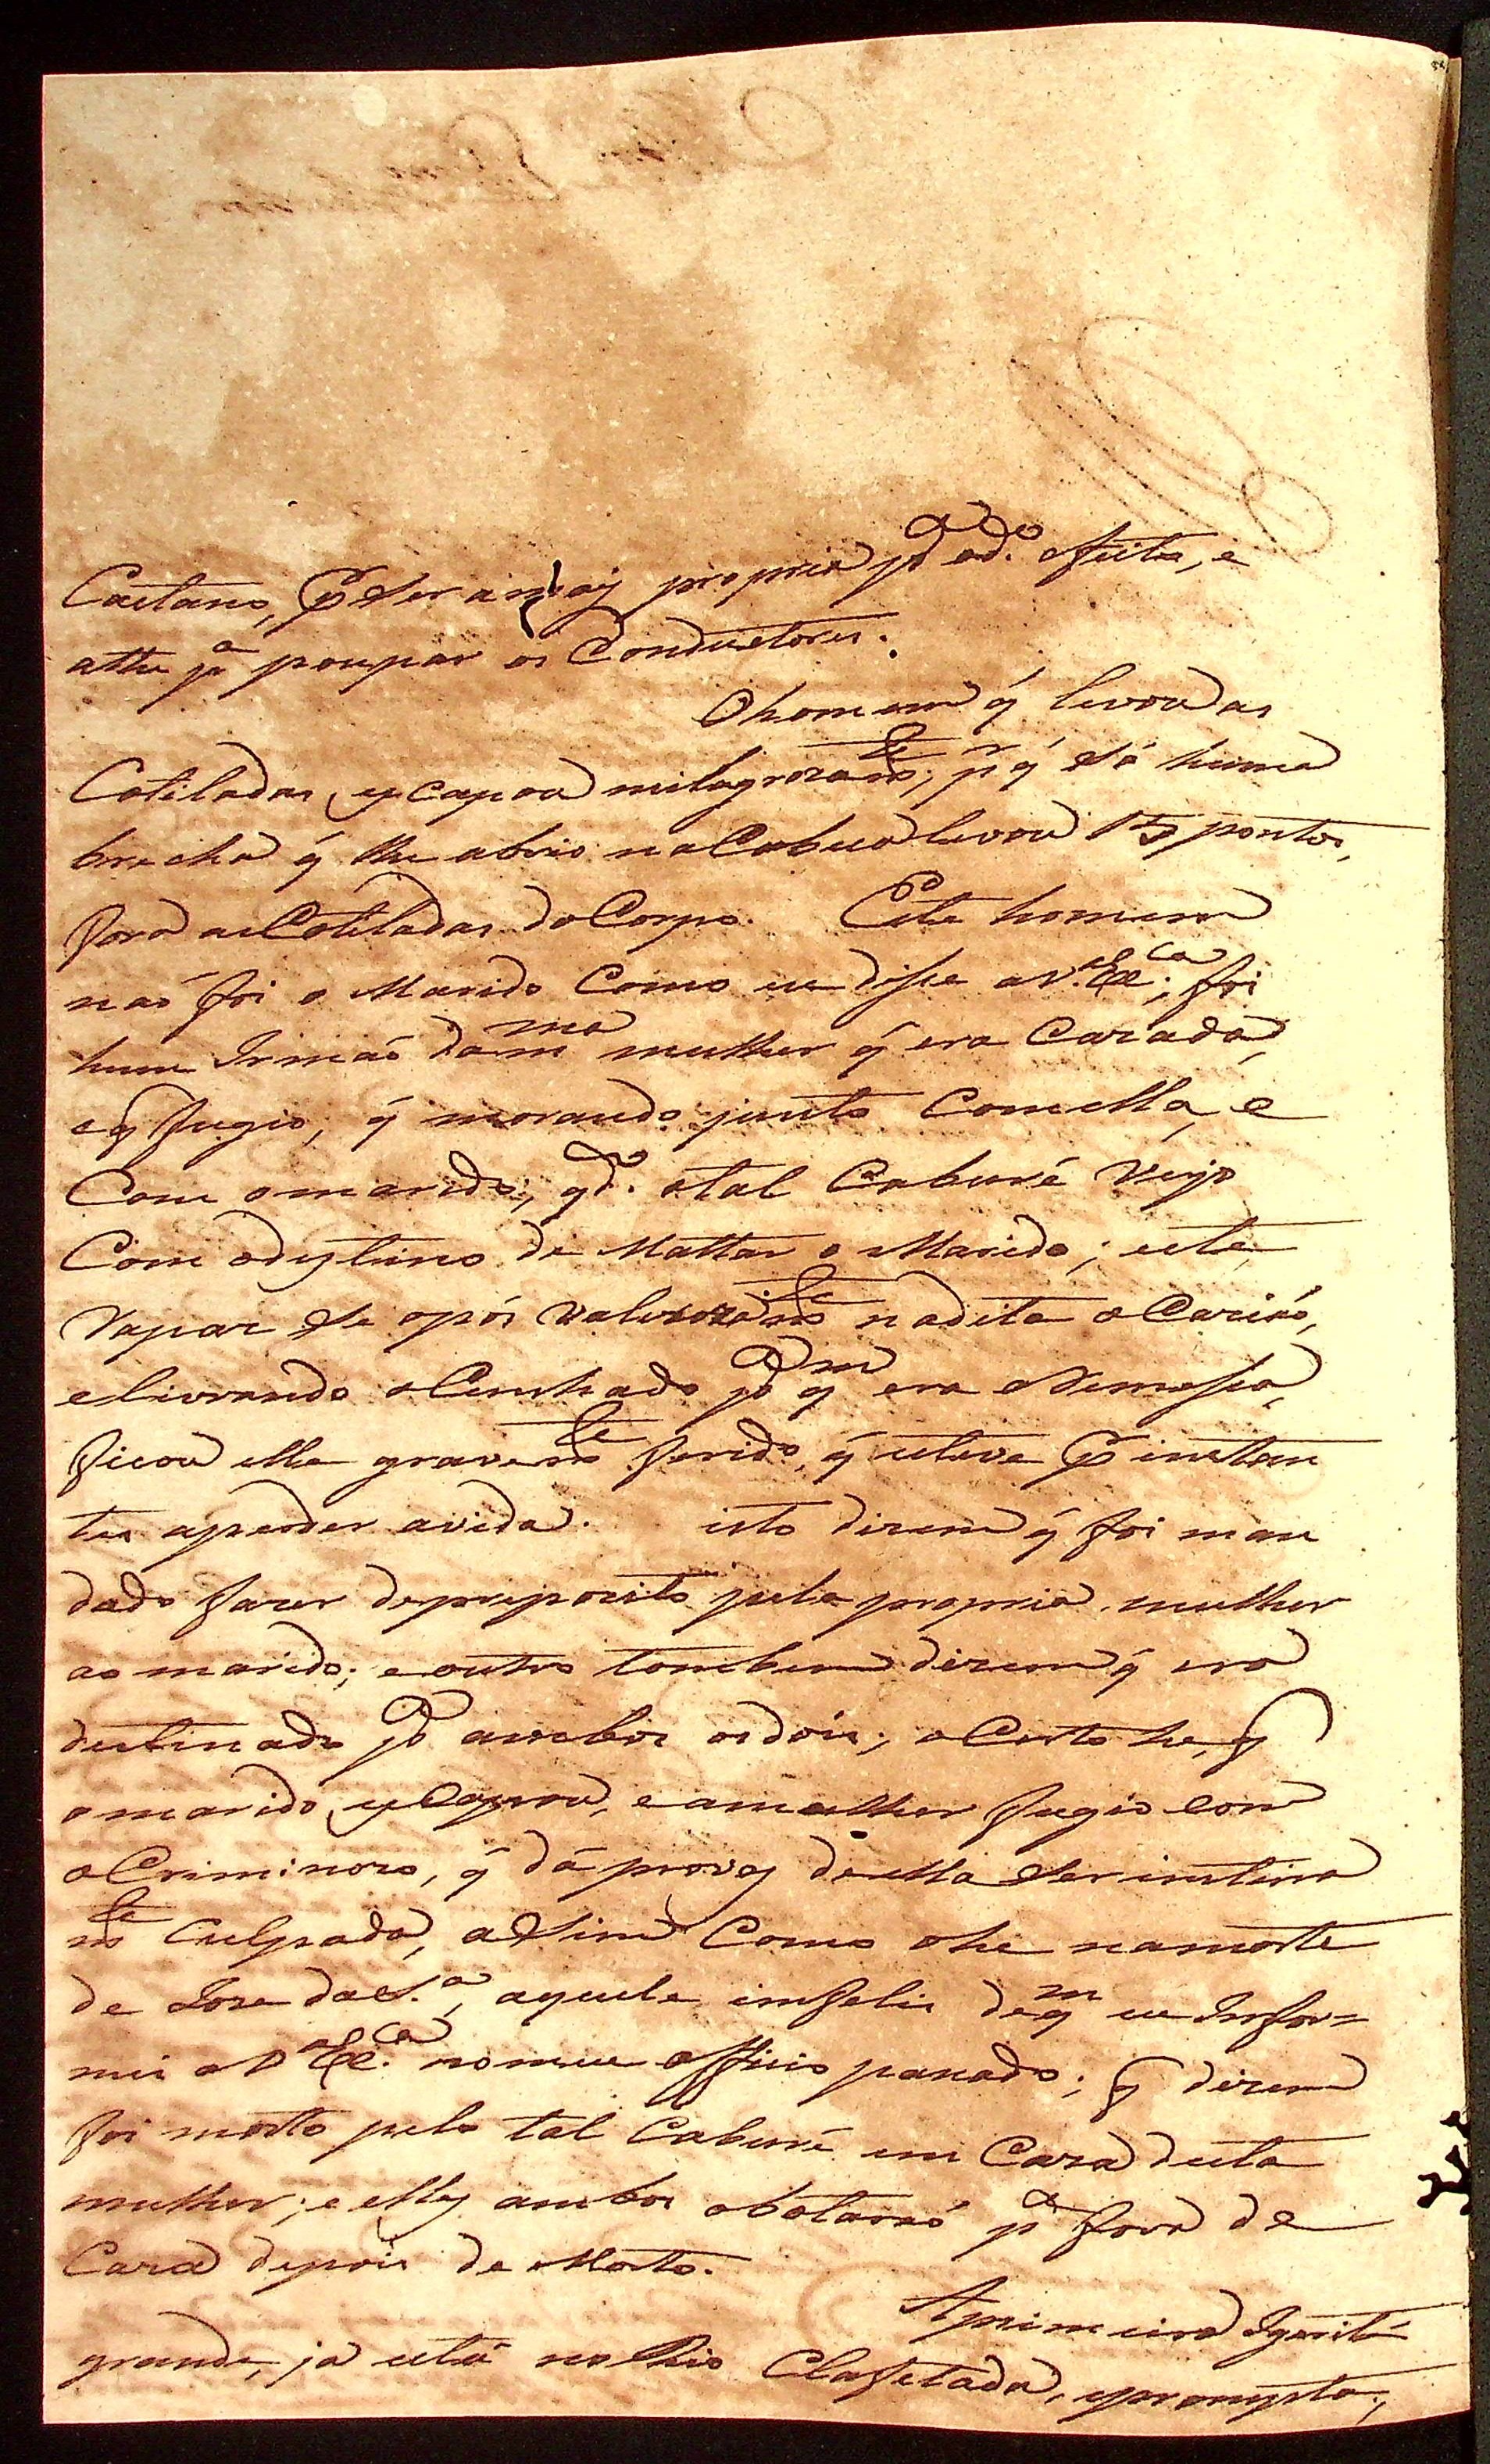 Caetano, p ser a mais propria p.ª od.º effeito, e
athe p.ª poupar os Conductores.
O homem q̃ levou as
Cotiladas, escapou milagrozam.te; p.r q̃ só huma
brecha q̃ lhe abrio na Cabeça levou 15 pontos,
fora as Cotiladas do Corpo. Este homem
naõ foi o Marido Como eu disse a V. Ex.ca; foi
hum Irmaõ da m.ma mulher q̃ era Cazada,
e q̃ fugio, q̃ morando junto Com ella, e
Com o marido, q.do o tal Caburé veyo
Com odestino de Mattar o Marido; este
rapaz se opós valerozam.te na dita oCariaõ,
e livrando o Cunhado p.ª q.m era a Remessa,
ficou elle gravem.te ferido, q̃ esteve p instan
tes aperder avida. isto dizem q̃ foi man
dado fazer depreposito pela propria mulher
ao marido; e outros tambem dizem q̃ era
destinado p.ª ambos os dois; o Certo he, q̃
o marido escapou, e a mulher fugio com
o Criminozo, q̃ dá provas de ella ser inteira
m.te Culpada, assim Como o he na morte
de Joze da S.ª, aquele infelis de q.m eu Infor=
mei a V. Ex.ca no meu officio passado; q̃ dizem
foi morto pelo tal Caburé em Caza desta
mulher; e elles ambos obotaraõ p.ª fora de
Caza depois de Morto.
A primeira Igarité
grande, ja está no Rio Clafetada, e prompta;